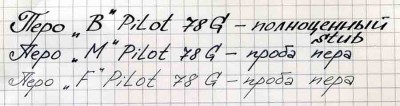 Перо „B“ Pilot 78 G – полноценный
stub
Перо „M“ Pilot 78 G – проба пера
Перо „F“ Pilot 78 G – проба пера